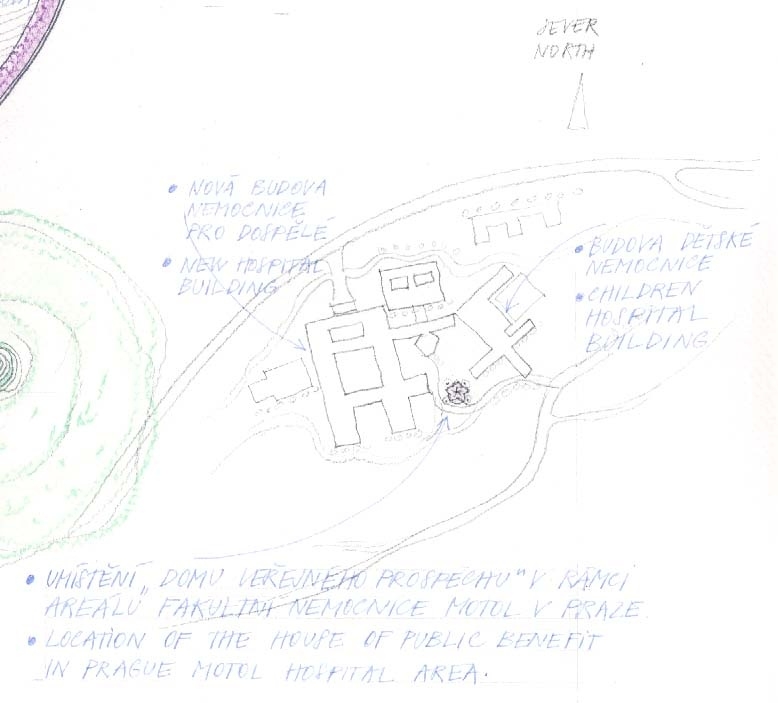 SEVER
NORTH
• NOVÁ BUDOVA
NEMOCNICE
PRO DOSPĚLÉ
• NEW HOSPITAL
BUILDING
• BUDOVA DĚTSKÉ
NEMOCNICE
• CHILDREN
HOSPITAL
BUILDING
• UMÍSTĚNÍ „DOMU VEŘEJNÉHO PROSPĚCHU" V RÁMCI
AREÁLU FAKULTNÍ NEMOCNICE MOTOL V PRAZE
• LOCATION OF THE HOUSE OF PUBLIC BENEFIT
IN PRAGUE MOTOL HOSPITAL AREA.